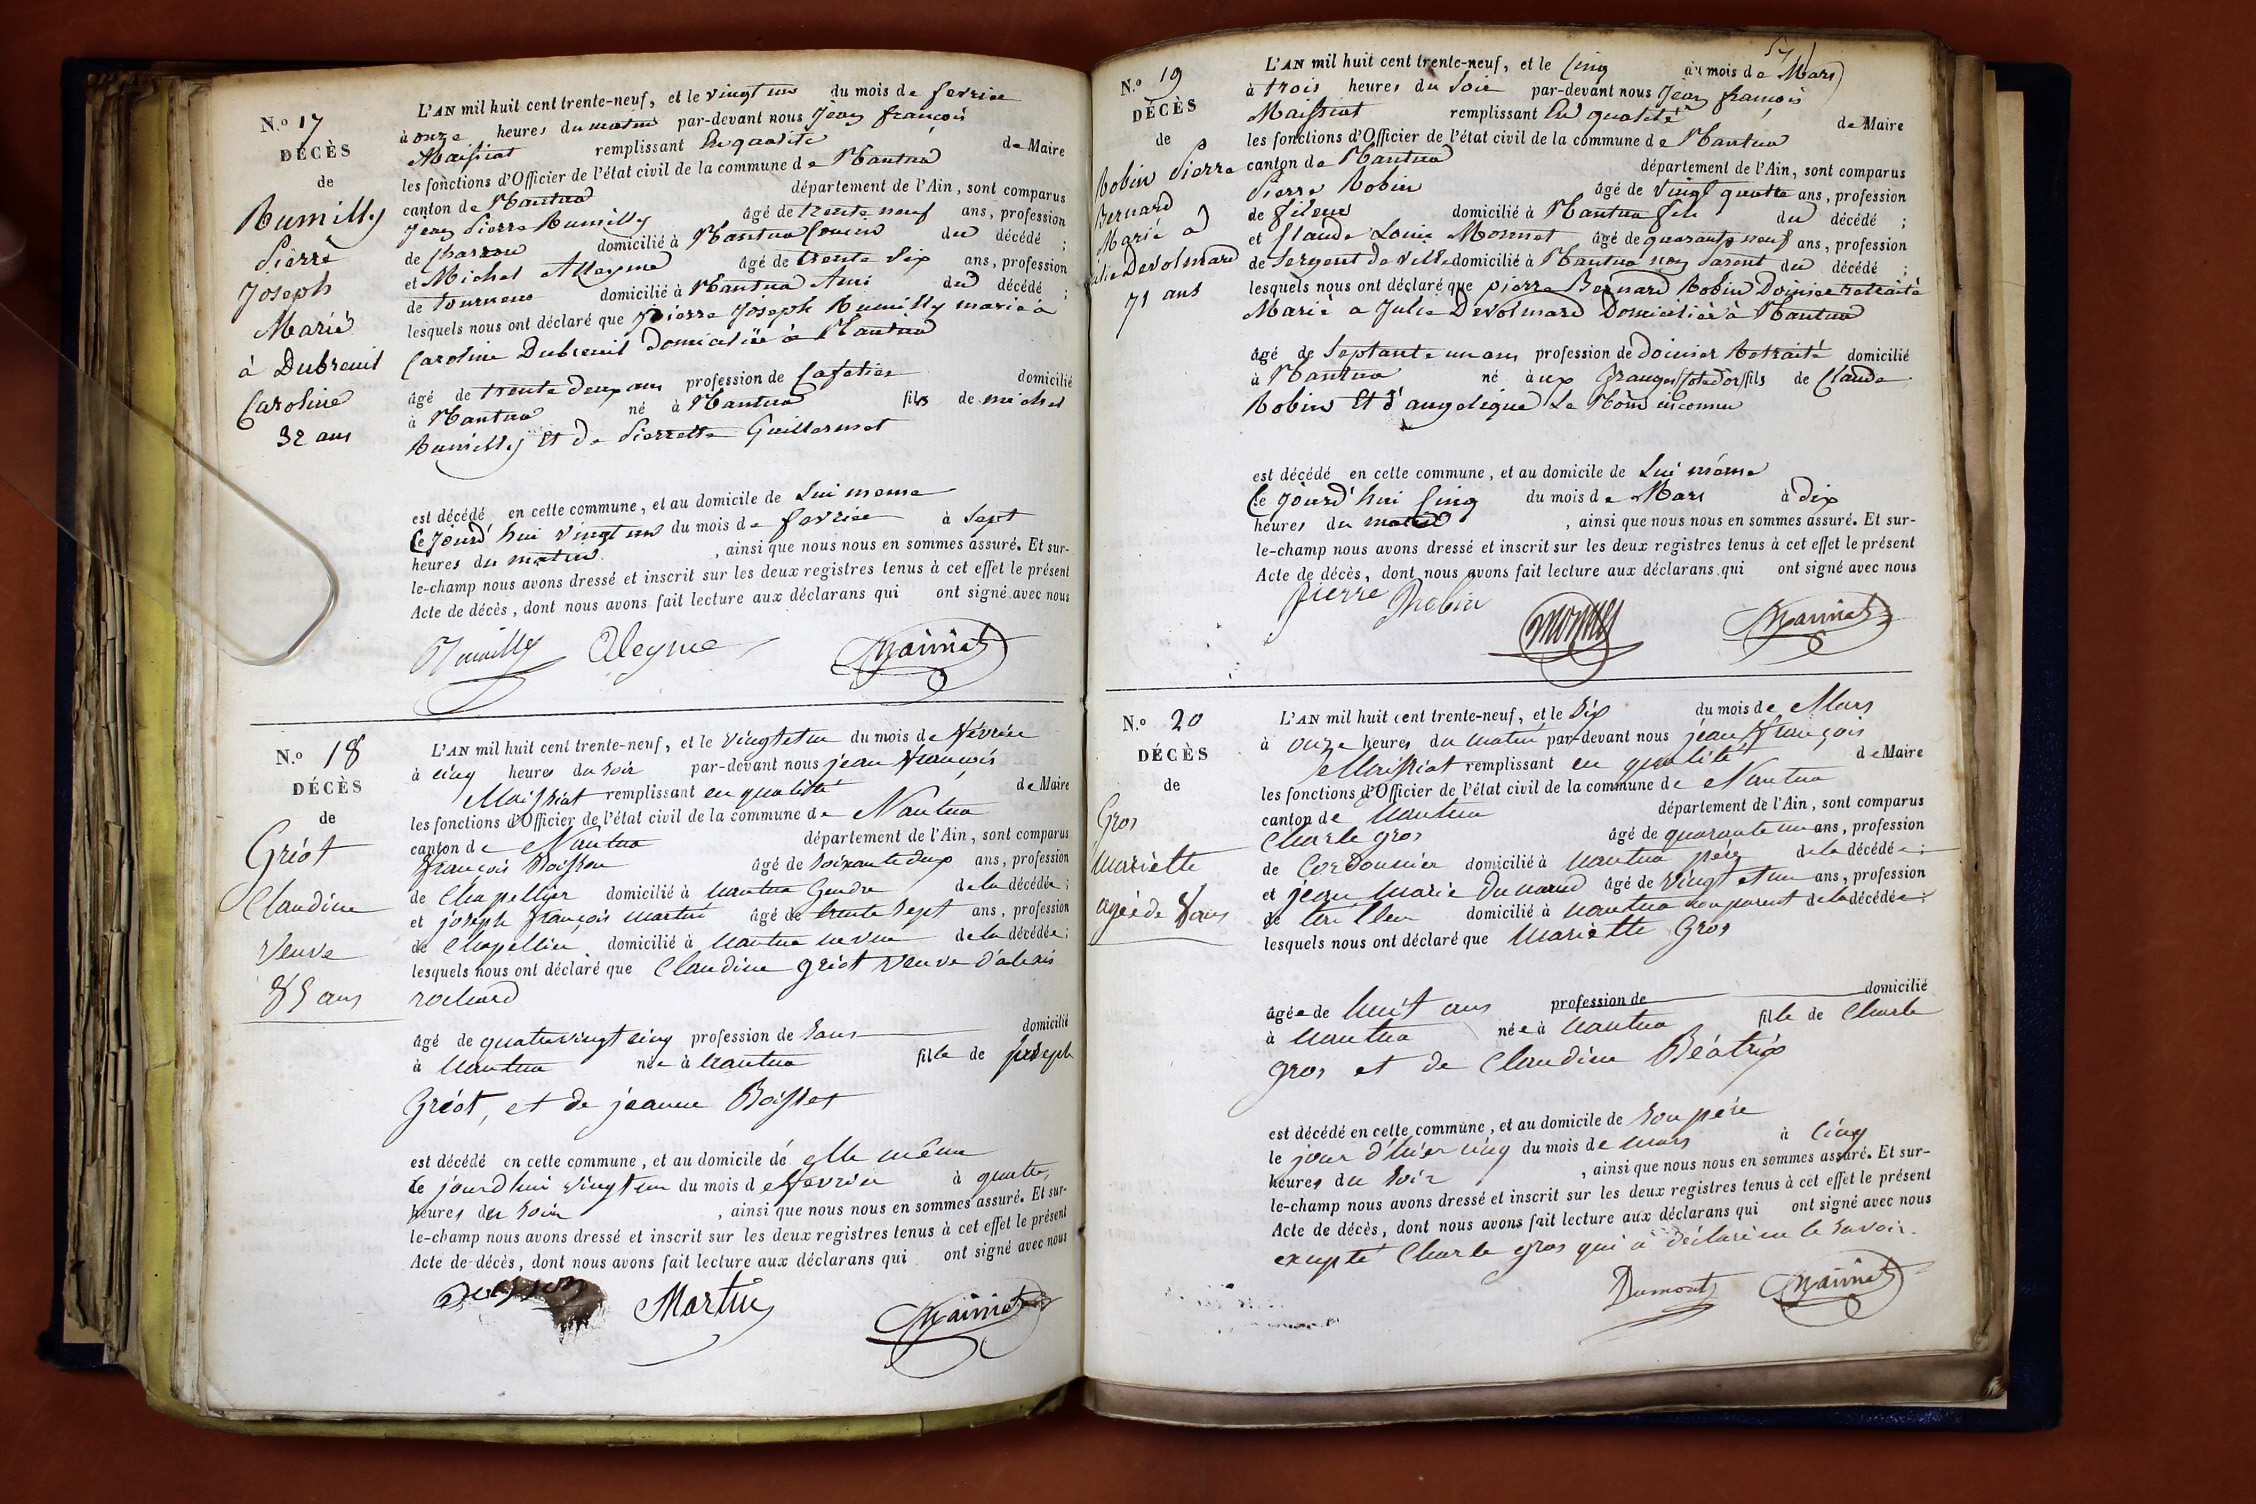 N.o 17
DÉCÈS
de
Rumilly
Pierre
Joseph
Marié
à Dubreuil
Caroline
32 ans
L'AN mil huit cent trente-neuf, et le vingt un du mois de fevrier
à onze heures du matin par-devant nous Jean françois
Maissiat remplissant En qualité de Maire
les fonctions d'Officier de l'état civil de la commune de Nantua
canton de Nantua département de l'Ain, sont comparus
Jean Pierre Rumilly âgé de trente neuf ans, profession
de charron domicilié à Nantua Cousin du décédé ;
et Michel Alleyme âgé de trente Six ans, profession
de tourneur domicilié à Nantua Ami du décédé ;
lesquels nous ont déclaré que pierre Joseph Rumilly marié a
Caroline Dubreuil Domicilié à Nantua
âgé de trente deux ans profession de Cafetier domicilié
à Nantua né à Nantua fils de michel
Rumilly Et de Pierrette Guillermet
est décédé en cette commune, et au domicile de Lui meme
Ce Jourd'hui vingt un du mois de fevrier à Sept
heures du matin , ainsi que nous nous en sommes assuré. Et sur-
le-champ nous avons dressé et inscrit sur les deux registres tenus à cet effet le présent
Acte de décès, dont nous avons fait lecture aux déclarans qui ont signé avec nous
Rumilly Aleyme Maissiat
N.o 18
DÉCÈS
de
Gréot
Claudine
veuve
85 ans
L'AN mil huit cent trente-neuf, et le vingt et un du mois de Février
à cinq heures du soir par-devant nous jean François
Maissiat remplissant en qualité de Maire
les fonctions d'Officier de l'état civil de la commune de Nantua
canton de Nantua département de l'Ain, sont comparus
François Boisson âgé de soixante dux ans, profession
de Chapellier domicilié à nantua Gendre de la décédée ;
et joseph françois martin âgé de trente sept ans, profession
de Chapellier domicilié à nantua neveu de la décédée ;
lesquels nous ont déclaré que Claudine gréot veuve
rochard
âgé de quatre vingt cinq profession de sans domicilié
à nantua née à nantua fille de joseph
Gréot, et de jeanne Boisset
est décédé en cette commune, et au domicile de elle même
le jourd'hui vingt un du mois de fevrier à quatre
heures du soir , ainsi que nous nous en sommes assuré. Et sur-
le-champ nous avons dressé et inscrit sur les deux registres tenus à cet effet le présent
Acte de décès, dont nous avons fait lecture aux déclarans qui ont signé avec nous
Martin Maissiat
57
N.o 19
DÉCÈS
de
Robin Pierre
Bernard
Marié a
Julie Devolmard
71 ans
L'AN mil huit cent trente-neuf, et le Cinq du mois de Mars
à trois heures du Soir par-devant nous Jean françois
Maissiat remplissant En qualité de Maire
les fonctions d'Officier de l'état civil de la commune de Nantua
canton de Nantua département de l'Ain, sont comparus
Pierre Robin âgé de vingt quatre ans, profession
de fileur domicilié à Nantua fils du décédé ;
et Claude Louis Monnet âgé de quarante neuf ans, profession
de Sergent de ville domicilié à Nantua non Parent du décédé ;
lesquels nous ont déclaré que pierre Bernard Robin Doinier retraité
Marié a Julie Devolmard Domicilié à Nantua
âgé de Septante un ans profession de doinier Retraité domicilié
à Nantua né aux Granges (Cotedor) fils de Claude
Robin Et d'angelique Le Nom inconnu
est décédé en cette commune, et au domicile de Lui même
Ce jourd'hui Cinq du mois de Mars à dix
heures du matin , ainsi que nous nous en sommes assuré. Et sur-
le-champ nous avons dressé et inscrit sur les deux registres tenus à cet effet le présent
Acte de décès, dont nous avons fait lecture aux déclarans qui ont signé avec nous
pierre Robin Monnet Maissiat
N.o 20
DÉCÈS
de
Gros
Mariette
agée de 8 ans
L'AN mil huit cent trente-neuf, et le Six du mois de Mars
à onze heures du matin par-devant nous jean François
Maissiat remplissant en qualité de Maire
les fonctions d'Officier de l'état civil de la commune de Nantua
canton de Nantua département de l'Ain, sont comparus
Charle gros âgé de quarante un ans, profession
de Cordonnier domicilié à nantua père de la décédée ;
et jean marie Dumont âgé de vingt et un ans, profession
de domicilié à nantua non parent de la décédée ;
lesquels nous ont déclaré que Mariette Gros
âgée de huit ans profession de domicilié
à nantua née à nantua fille de Charle
gros et de Claudine Béatrix
est décédé en cette commune, et au domicile de son père
le jour d'hier cinq du mois de mars à cinq
heures du soir , ainsi que nous nous en sommes assuré. Et sur-
le-champ nous avons dressé et inscrit sur les deux registres tenus à cet effet le présent
Acte de décès, dont nous avons fait lecture aux déclarans qui ont signé avec nous
excepté Charle gros qui a déclaré ne le savoir.
Dumont Maissiat